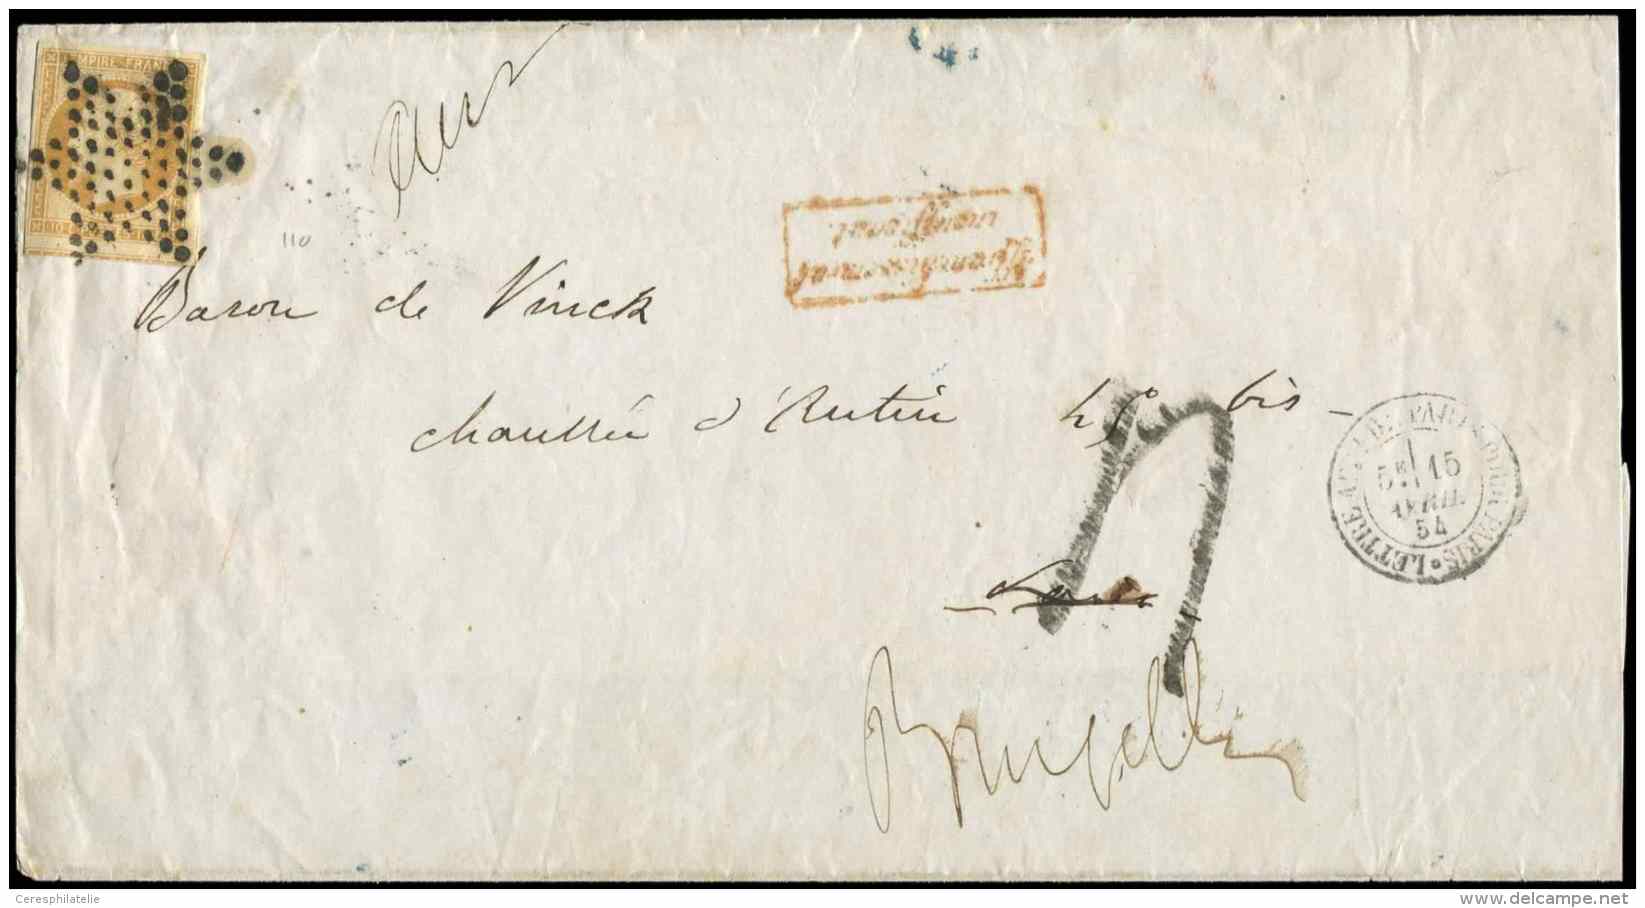 EMPIRE FRANC
10
110
Baron de Vinck
chaussée d'Antin 45 bis
Paris
Bruxelles
LETTRE AFF. DE PARIS POUR PARIS
5E 15
AVRIL
54
Ceresphilatelie
www.delcampe.net